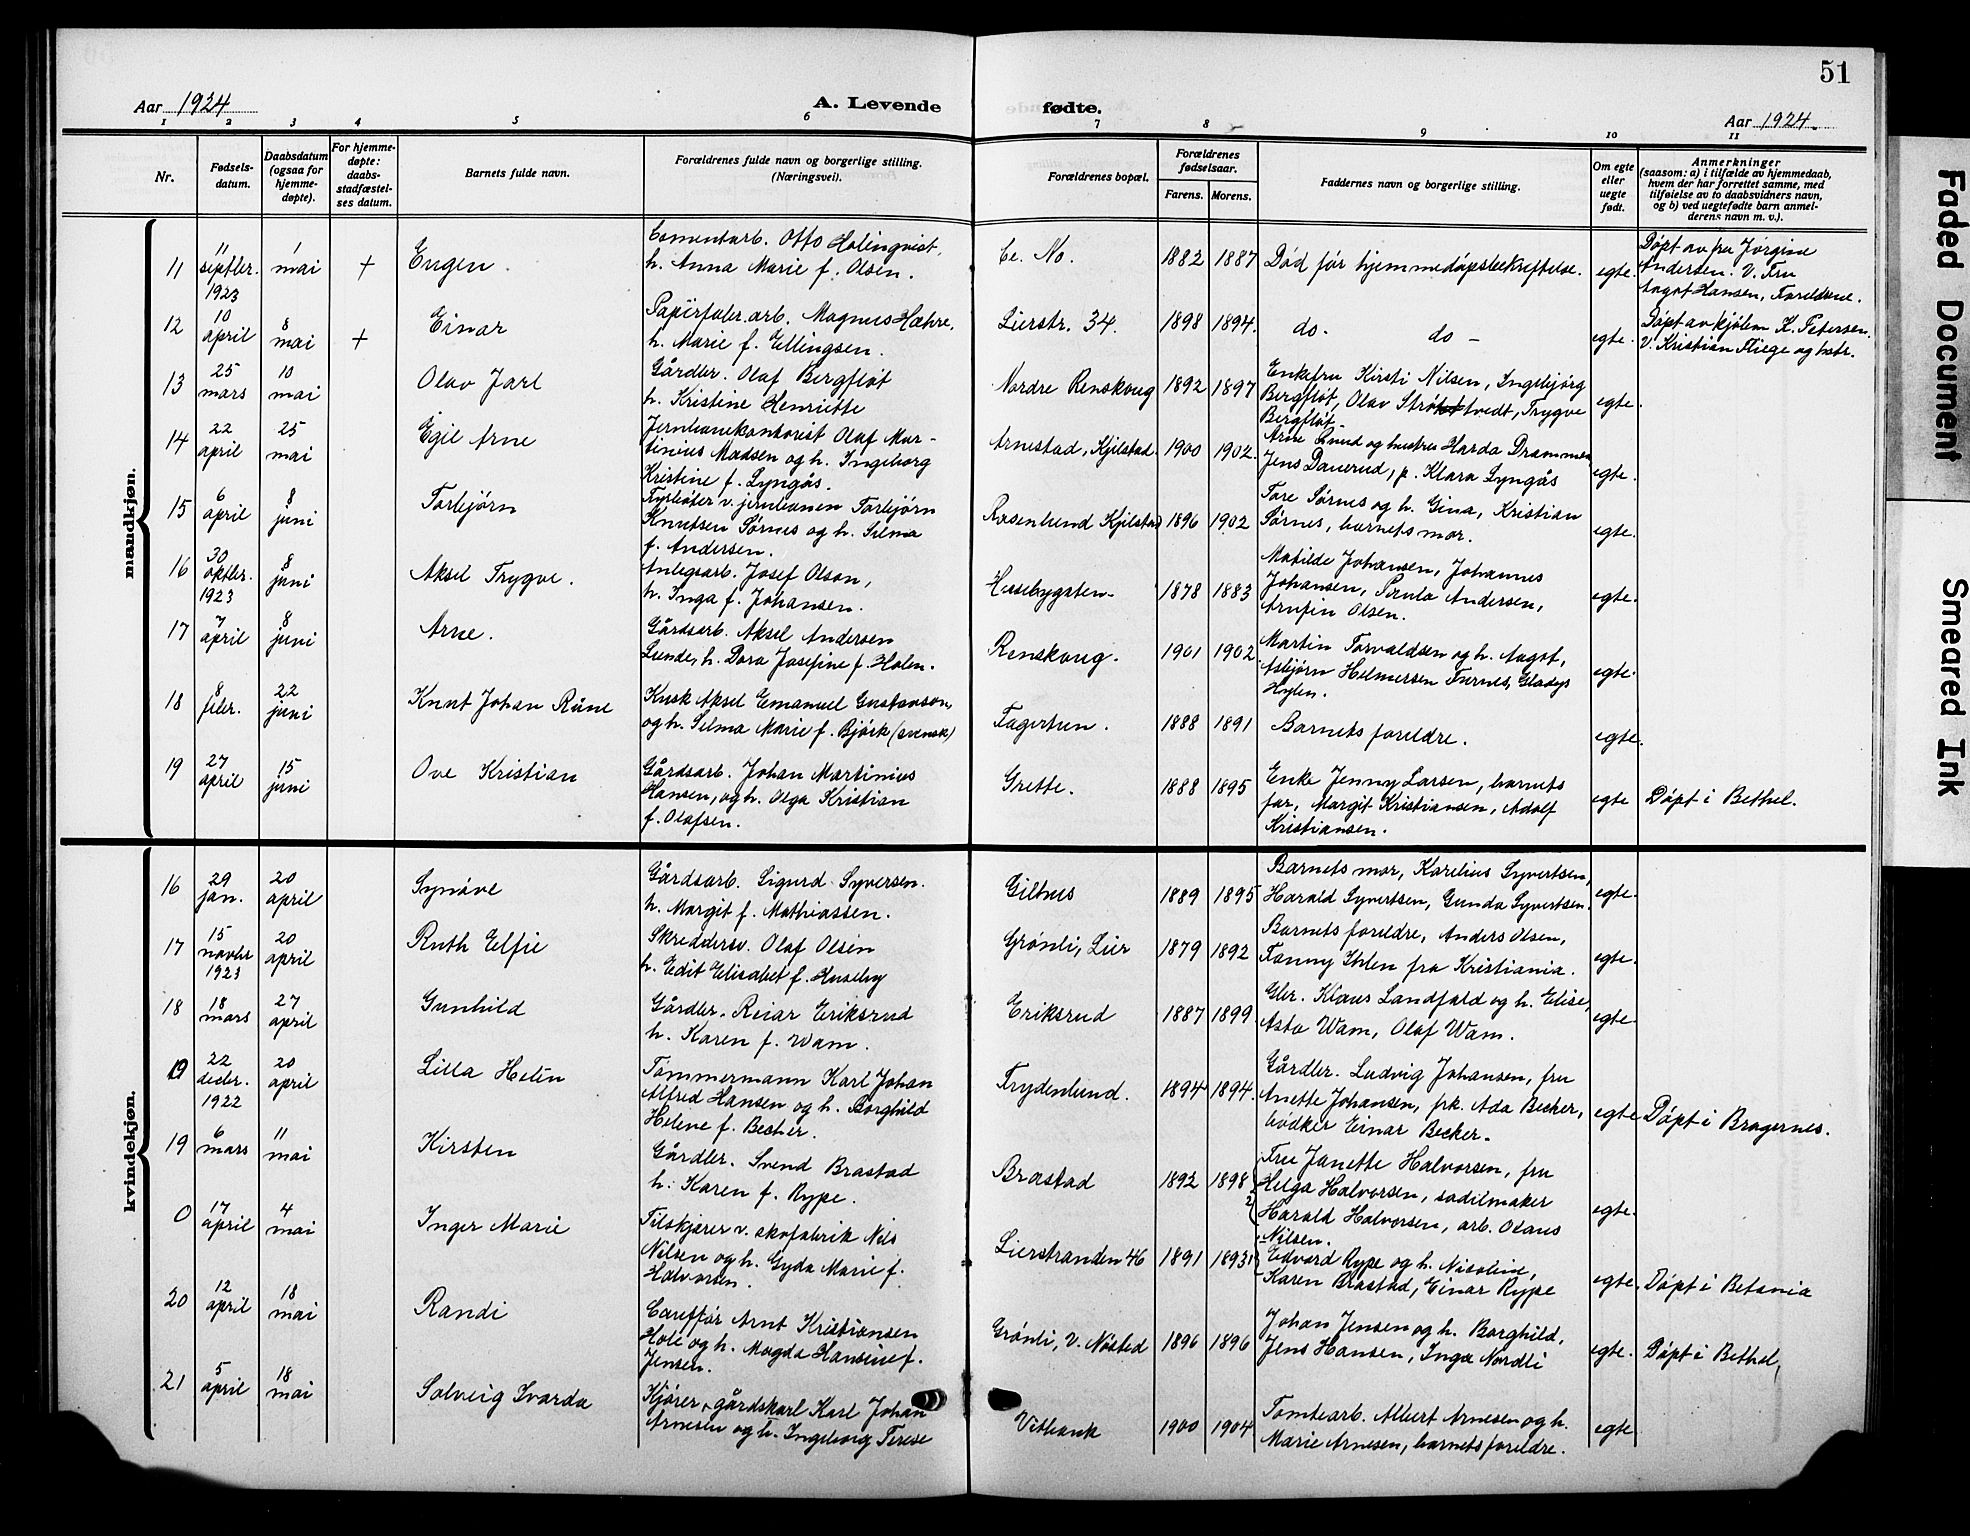 51
Aar 1924
A. Levende
fødte.
Aar 1924.
1 2 3 4 5 6 7 8 9 10 11
Nr.
Fødsels-
datum.
Daabsdatum
(ogsaa for
hjemme-
døpte).
For hjemme-
døpte:
daabs-
stadfæstel-
ses datum.
Barnets fulde navn.
Forældrenes fulde navn og borgerlige stilling.
(Næringsvei).
Forældrenes bopæl.
Forældrenes
fødselsaar.
Farens. Morens.
Faddernes navn og borgerlige stilling.
Om egte
eller
uegte
født.
Anmerkninger
(saasom: a) i tilfælde av hjemmedaab,
hvem der har forrettet samme, med
tilføielse av to daabsvidners navn,
og b) ved uegtefødte barn anmel-
derens navn m. v.).
mandkjøn.
11
11 septbr. 1923
1 mai
+
Eugen.
Cementarb. Otto Holmqvist,
h. Anna Marie f. Olsen.
Ce. No.
1882 1887
Død før hjemmedåpsbekreftelse.
egte.
Døpt av fru Jørgine
Andersen. V. Fru
Aagot Hansen, Foreldrene.
12
10 april
8 mai
+
Einar
Papirfabr.arb. Magnus Hæhre,
h. Marie f. Ellingsen.
Lierstr. 34.
1898 1894.
do. do -
egte.
Døpt av kjølem K. Petersen.
V. Kristian Fliege og hstr.
13
25 mars
10 mai
Olav Jarl
Gårdbr. Olaf Bergfløt
h. Kristine Henriette
Nordre Renskoug
1892 1897
Enkefru Kirsti Nilsen, Ingebjørg
Bergfløt, Olav Strømtvedt, Trygve
Bergfløt.
egte.
14
22 april
25 mai
Egil Arne
Jernbanekontorist Olaf Mar-
tinius Madsen og h. Ingeborg
Kristine f. Lyngås.
Arnestad, Kjilstad.
1900 1902.
Arne Lund og hustru Harda Drammen
Jens Danerud, p. Klara Lyngås
egte.
15
6 april
8 juni
Torbjørn
Fyrbøter v. jernbanen Torbjørn
Knutsen Sørnes og h. Selma
f. Andersen.
Rosenlund Kjilstad
1896 1902
Tore Sørnes og h. Gina, Kristian
Sørnes, barnets mor.
egte.
16
30 oktbr. 1923
8 juni
Aksel Trygve.
Anlegsarb. Josef Olsen,
h. Inga f. Johansen.
Husebygaten.
1878 1883
Matilde Johansen, Johannes
Johansen, Paula Andersen,
Arnfin Olsen.
egte.
17
7 april
8 juni
Arne.
Gårdsarb. Aksel Andersen
Lunde, h. Dora Josefine f. Holen.
Renskoug.
1901 1902
Martin Torvaldsen og h. Aagot,
Asbjørn Helmersen Furnes, Gladys
Hylen.
egte.
18
8 febr.
22 juni
Knut Johan Rune
Kusk Aksel Emanuel Gustavson,
og h. Selma Marie f. Bjørk (svensk)
Fagertun.
1888 1891
Barnets foreldre.
egte.
19
27 april
15 juni
Ove Kristian
Gårdsarb. Johan Martinius
Hansen, og h. Olga Kristian
f. Olafsen.
Grette.
1888 1895
Enke Jenny Larsen, barnets
far, Margit Kristiansen, Adolf
Kristiansen.
egte
Døpt i Bethel.
kvindekjøn.
16
29 jan.
20 april
Synøve
Gårdsarb. Sigurd Syversen.
h. Margit f. Mathiassen.
Gilhus
1889 1895
Barnets mor, Karelius Syvertsen,
Harald Syvertsen, Gunda Syvertsen.
egte.
17
15 novbr 1923
20 april
Ruth Elfie
Skreddersv. Olaf Olsen
h. Edit Elisabet f. Huseby
Grønli, Lier
1879 1892
Barnets foreldre, Anders Olsen,
Fanny Ihlen fra Kristiania.
egte.
18
18 mars
27 april
Gunhild
Gårdbr. Reiar Eriksrud
h. Karen f. Wam.
Eriksrud
1887 1899
Gbr. Klaus Landfald og h. Elise,
Asta Wam, Olaf Wam.
egte.
19
22 decbr. 1922
20 april
Lilla Helen
Tømmermann Karl Johan
Alfred Hansen og h. Borghild
Helene f. Becher.
Frydenlund.
1894 1894.
Gårdbr. Ludvig Johansen, fru
Anette Johansen, frk. Ada Becker,
bødker Einar Becker.
egte
Døpt i Bragernes.
19
6 mars
11 mai
Kirsten
Gårdbr. Svend Brastad
h. Karen f. Rype.
Brastad
1892 1898
2
Fru Janette Halvorsen, fru
Helga Halvorsen, sadilmaker
Harald Halvorsen, arb. Olaus
Nilsen.
egte.
0
17 april
4 mai
Inger Marie
Tilskjærer v. skofabrik Nils
Nilsen og h. Gyda Marie f.
Halvorsen.
Lierstranden 46
1891 1893
1
Edvard Rype og h. Nicoline,
Karen Brastad, Einar Rype
egte.
Døpt i Betania
20
12 april
18 mai
Randi
Arnt Kristiansen
Hole og h. Magda Hansine f.
Jensen.
Grønli, v. Nøsted
1896 1896
Johan Jensen og h. Borghild,
Jens Hansen, Inga Nordli
egte.
Døpt i Bethel,
21
5 april
18 mai
Solveig Ivarda
Kjører, gårdskarl Karl Johan
Arnesen og h. Ingeborg Terese
Vitbank
1900 1904
Tomtearb. Albert Arnesen og h.
Marie Arnesen, barnets foreldre.
egte
Faded Document
Smeared Ink